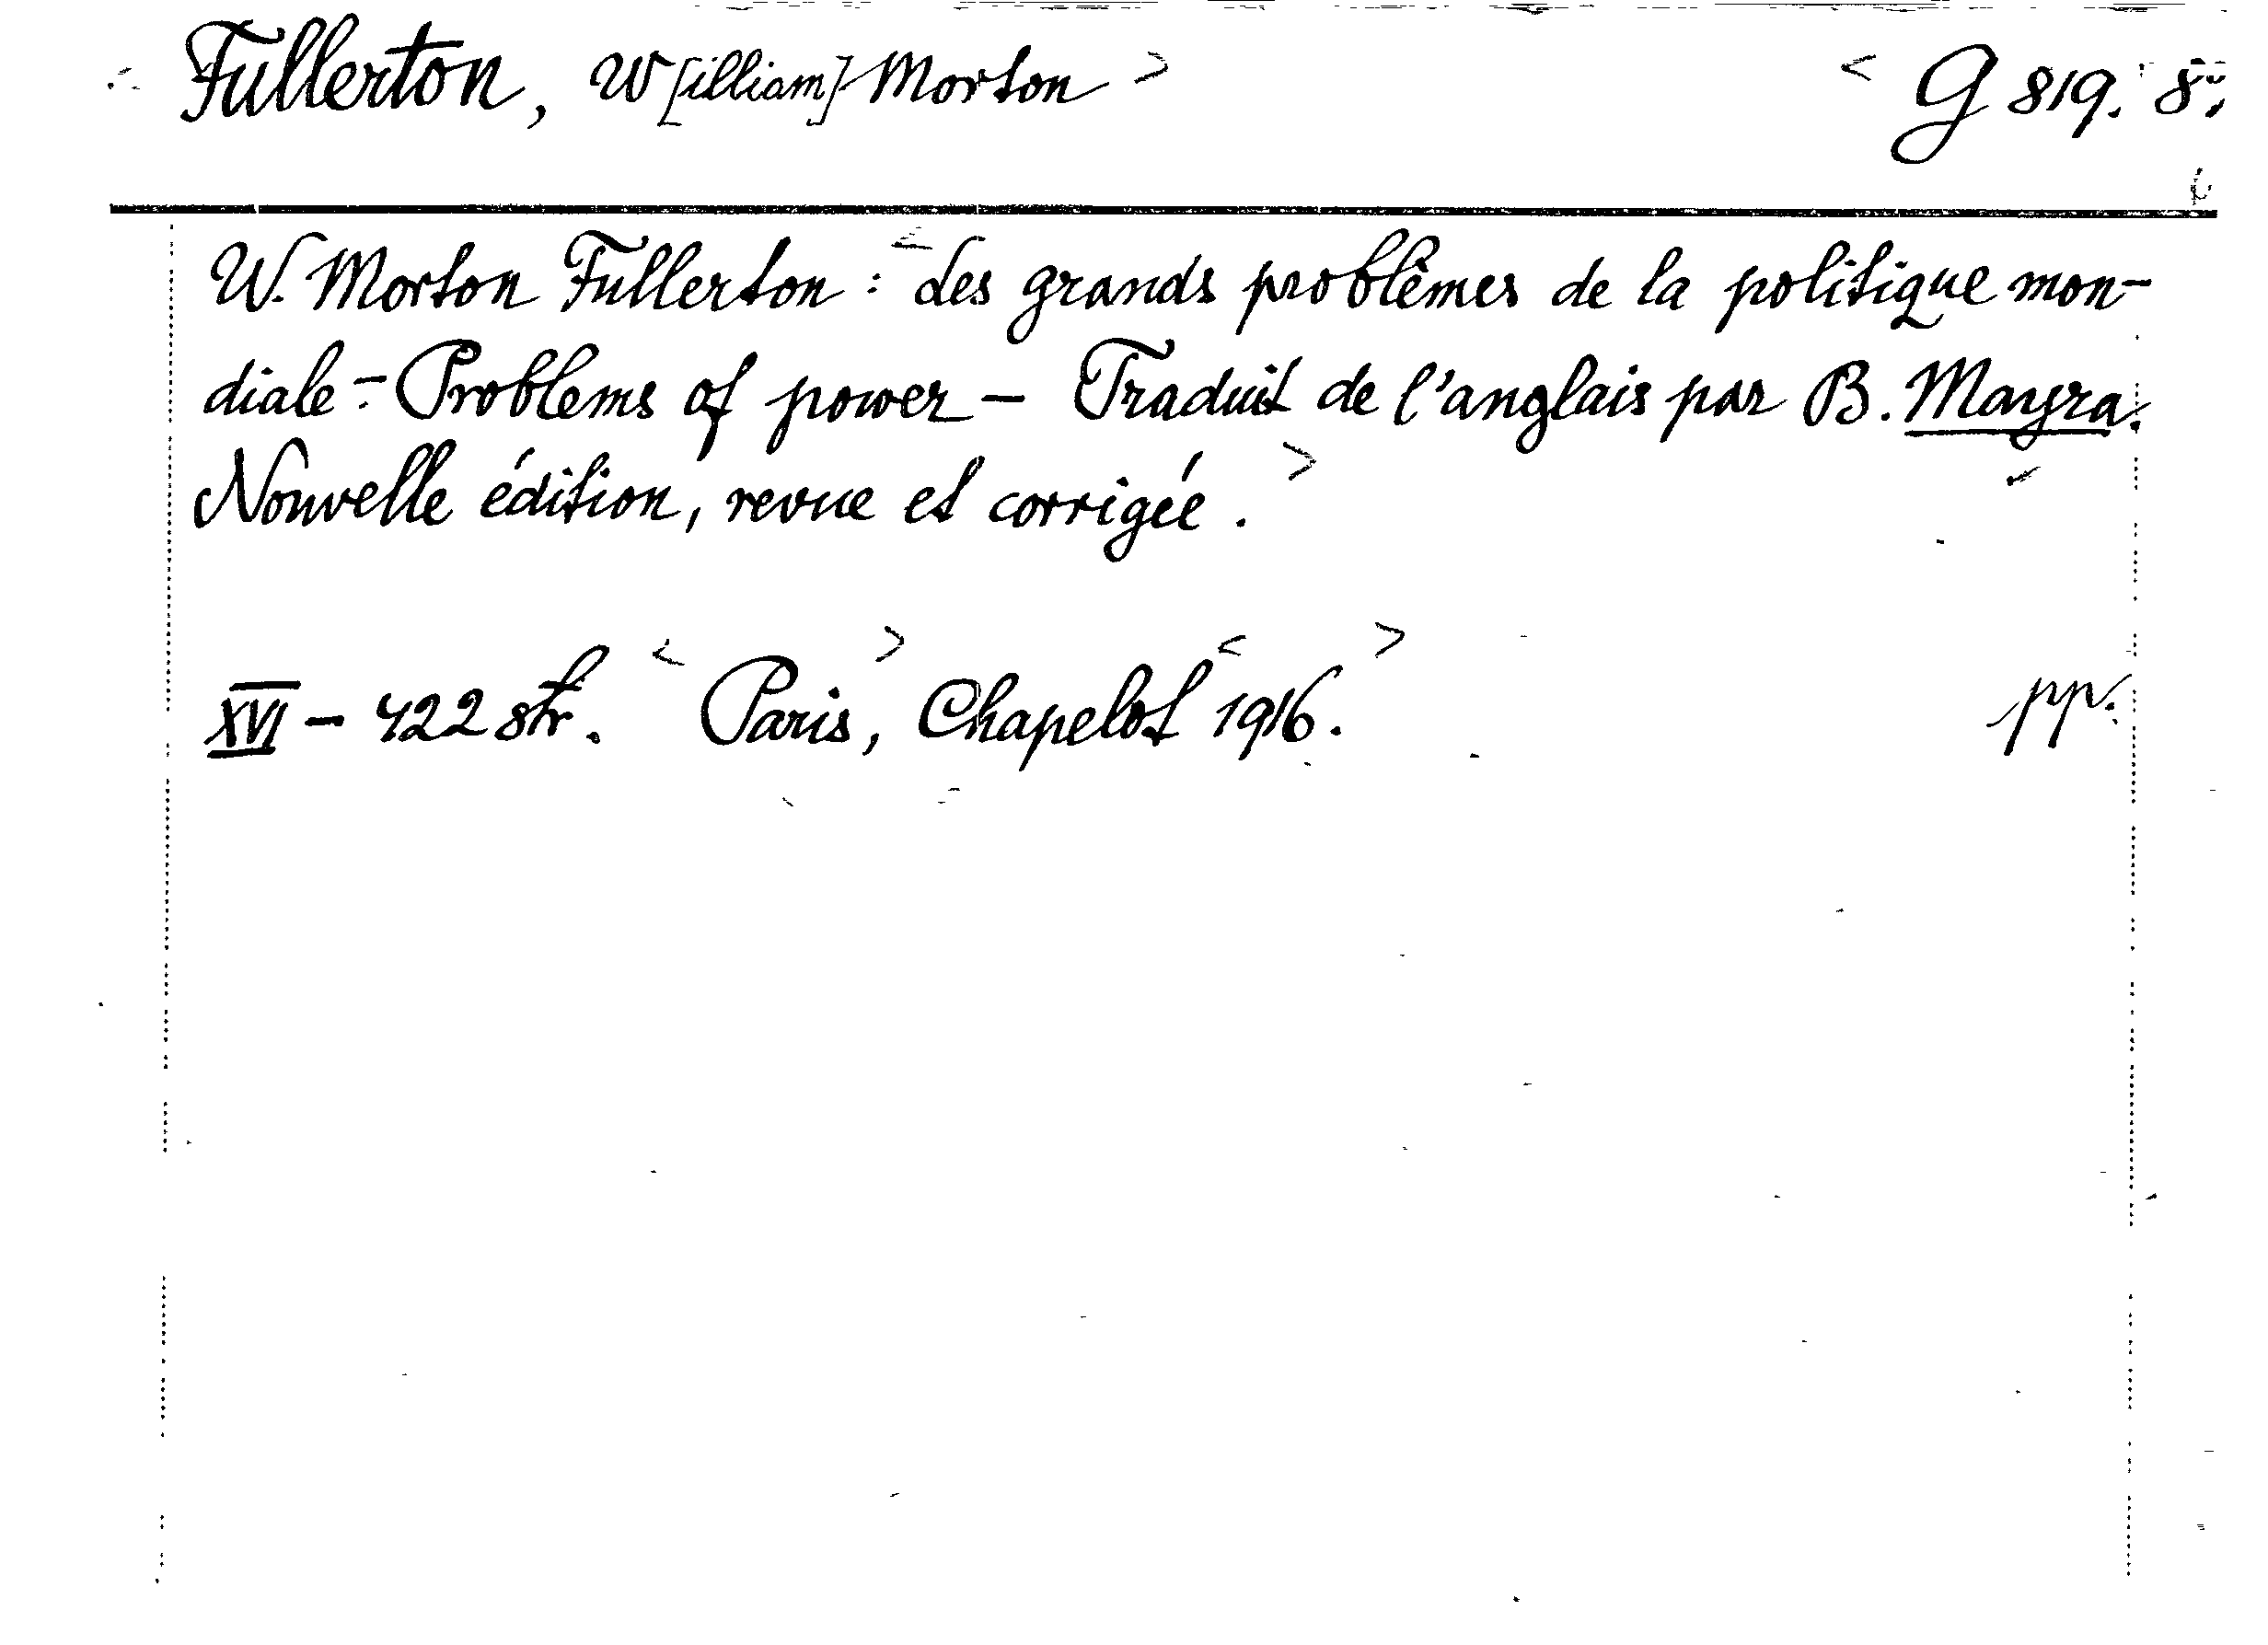 Fullerton, W[illiam] Morton > < G 819. 8º,
W. Morton Fullerton : Les grands problèmes de la politique mon-
diale - Problems of power - Traduit de l'anglais par B. Mayra.
Nouvelle édition, revue et corrigée. >
XVI - 422 str. < Paris, > Chapelot < 1916. > pp.